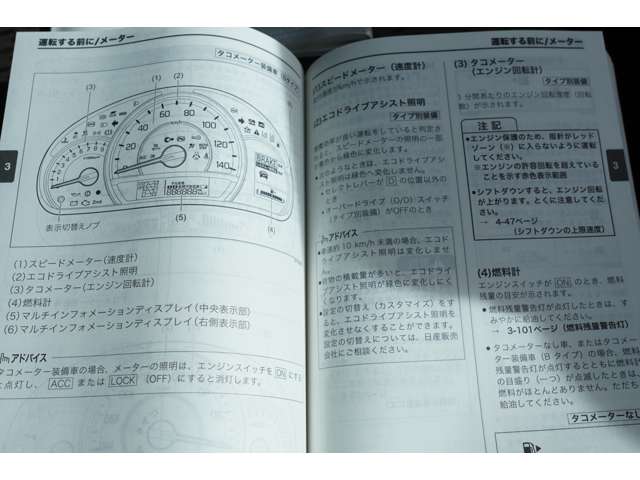 運転する前に/メーター
タコメーター装備車(Bタイプ)
(1)
(2)
(3)
km/h
20
40
60
80
100
120
140
BRAKE
3
表示切替えノブ
(5)
(4)
(1)スピードメーター(速度計)
(2)エコドライブアシスト照明
(3)タコメーター(エンジン回転計)
(4)燃料計
(5)マルチインフォメーションディスプレイ(中央表示部)
(6)マルチインフォメーションディスプレイ(右側表示部)
アドバイス
タコメーター装備車の場合、メーターの照明は、エンジンスイッチを ON にす
と点灯し、 ACC または LOCK (OFF)にすると消灯します。
運転する前に/メーター
(1)スピードメーター(速度計)
速度がkm/hで示されます。
(2)エコドライブアシスト照明
タイプ別装備
燃費効率が良い運転をしていると判定さ
と、スピードメーターの照明の一部
青から緑色に変化します。
のようなときは、エコドライブアシ
照明は緑色へ変化しません。
セレクトレバーが D の位置以外の
とき
オーバードライブ(O/D)スイッチ
(タイプ別装備)がOFFのとき
アドバイス
車速約 10 km/h 未満の場合、エコド
ライブアシスト照明は変化しませ
ん。
荷物の積載量が多いと、エコドライ
ブアシスト照明が緑色に変化しにく
くなります。
設定の切替え(カスタマイズ)をす
ると、エコドライブアシスト照明を
変化させなくすることができます。
設定の切替えについては、日産販売
会社にご相談ください。
(3)タコメーター
(エンジン回転計)
タイプ別装備
1 分間あたりのエンジン回転速度(回転
数)が示されます。
注 記
●エンジン保護のため、指針がレッド
ゾーン(※)に入らないように運転
してください。
※エンジンの許容回転を超えている
ことを示す赤色表示範囲
●シフトダウンすると、エンジン回転
が上がります。とくに注意してくだ
さい。
→ 4-47ページ
(シフトダウンの上限速度)
3
(4)燃料計
エンジンスイッチが ON のとき、燃料
残量の目安が示されます。
● 燃料残量警告灯が点灯したときは、す
みやかに給油してください。
→ 3-101ページ(燃料残量警告灯)
● タコメーターなし車、またはタコメー
ター装備車(B タイプ)の場合、燃料
残量警告灯が点灯するとともに燃料計
の目盛り(一つ)が点滅したときは、
燃料がほとんどありません。ただち
給油してください。
タコメーターなし